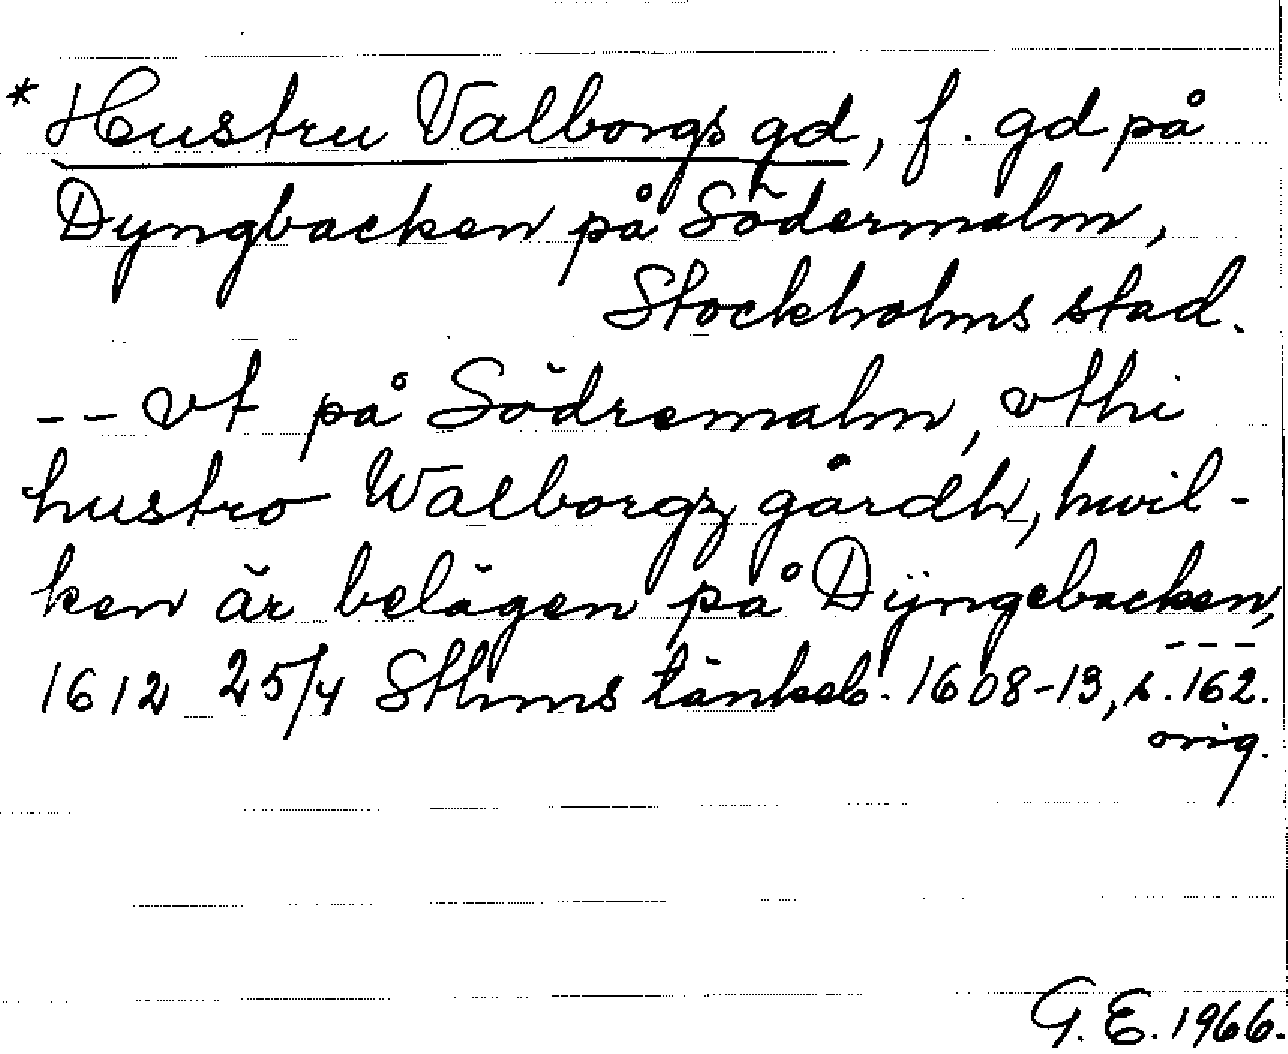 * Hustru Valborgs gd, f. gd på
Dyngbacken på Södermalm,
Stockholms stad.
-- vt på Södremalm, vthi
hustro Walborgz gårdh, huil-
ken är belägen på Dÿngebacken,
---
1612 25/4 Sthms tänkeb. 1608-13, s. 162.
orig.
G. E. 1966.